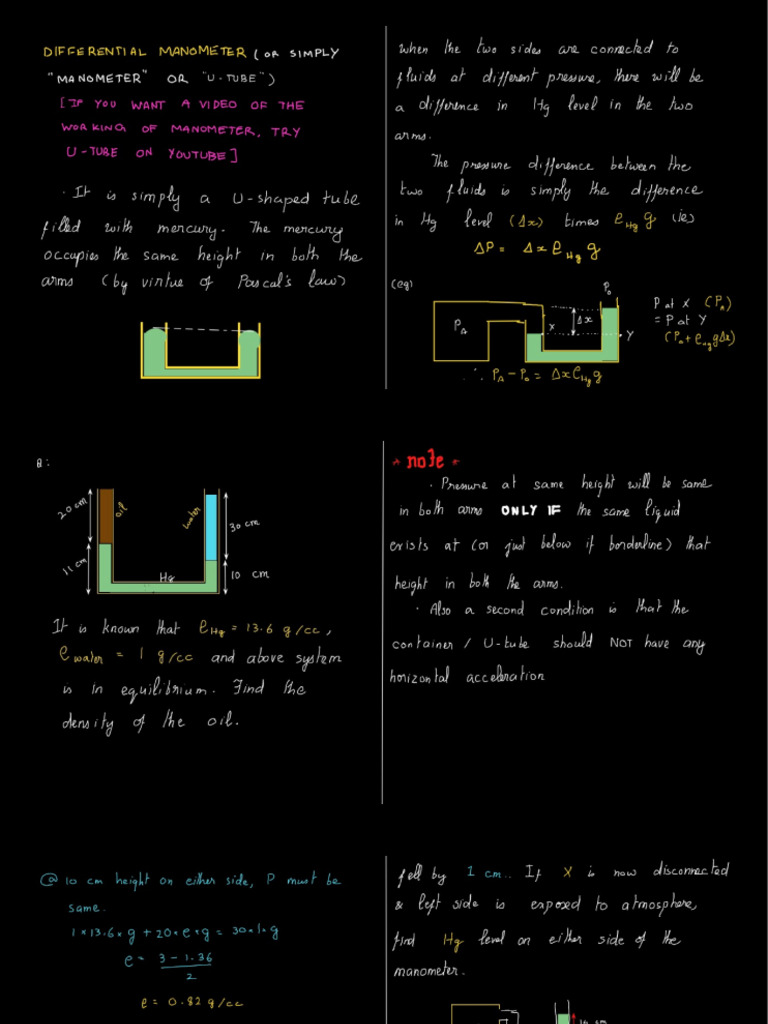 DIFFERENTIAL MANOMETER (OR SIMPLY
"MANOMETER" OR "U-TUBE")
[IF YOU WANT A VIDEO OF THE
WORKING OF MANOMETER, TRY
U-TUBE ON YOUTUBE]
· It is simply a U-shaped tube
filled with mercury. The mercury
occupies the same height in both the
arms (by virtue of Pascal's law)
when the two sides are connected to
fluids at different pressure, there will be
a difference in Hg level in the two
arms.
The pressure difference between the
two fluids is simply the difference
in Hg level (Δx) times ρHg g (ie)
ΔP = Δx ρHg g
(eg)
PA
X
Δx
P₀
Y
P at X (PA)
= P at Y
(P₀ + ρHg gΔx)
∴ PA - P₀ = Δx ρHg g
Q:
20 cm
oil
water
30 cm
11 cm
Hg
10 cm
It is known that ρHg = 13.6 g/cc,
ρwater = 1 g/cc and above system
is in equilibrium. Find the
density of the oil.
* note *
· Pressure at same height will be same
in both arms ONLY IF the same liquid
exists at (or just below if borderline) that
height in both the arms.
· Also a second condition is that the
container / U-tube should NOT have any
horizontal acceleration
@ 10 cm height on either side, P must be
same.
1×13.6×g + 20×ρ×g = 30×1×g
ρ = 3 - 1.36
2
ρ = 0.82 g/cc
fell by 1 cm. If X is now disconnected
& left side is exposed to atmosphere,
find Hg level on either side of the
manometer.